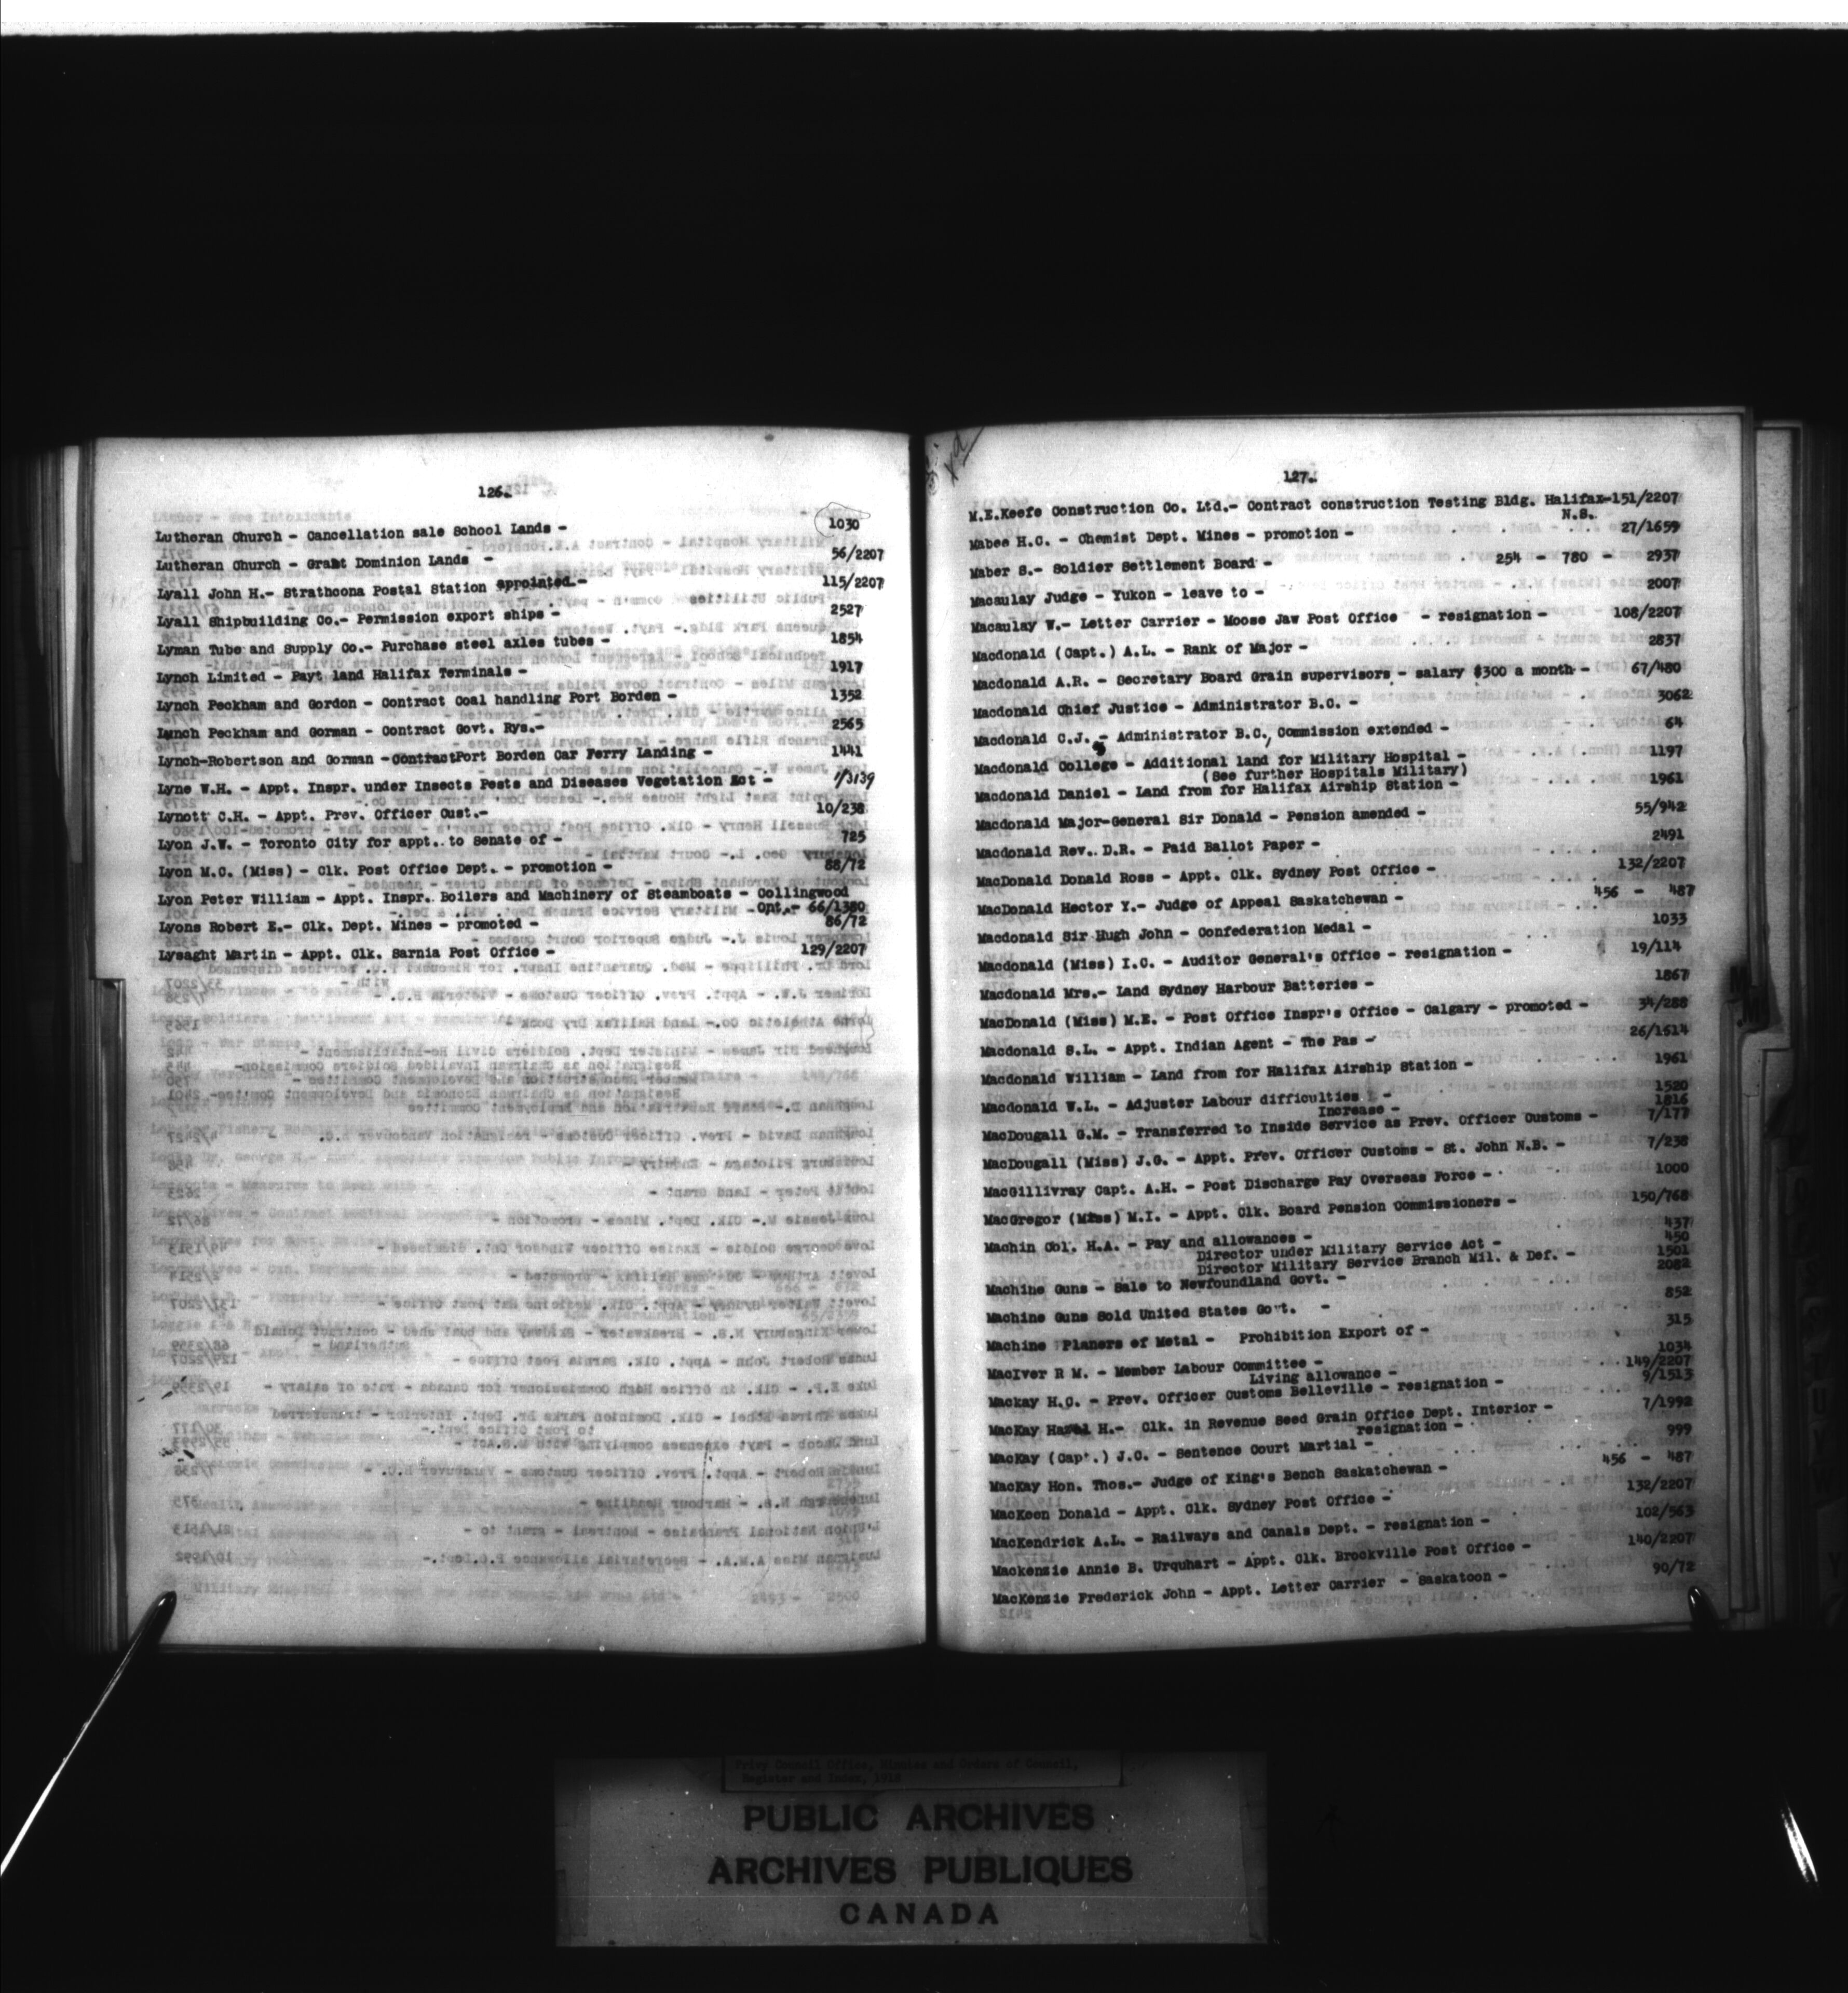 126.
Lutheran Church - Cancellation sale School Lands - 1030
Lutheran Church - Grant Dominion Lands - 56/2207
Lyall John H.- Strathcona Postal Station appointed - 115/2207
Lyall Shipbuilding Co.- Permission export ships - 2527
Lyman Tube and Supply Co.- Purchase steel axles tubes - 1854
Lynch Limited - Payt land Halifax Terminals - 1917
Lynch Peckham and Gordon - Contract Coal handling Port Borden - 1352
Lynch Peckham and Gorman - Contract Govt. Rys.- 2565
Lynch-Robertson and Gorman - Contract Port Borden Car Ferry Landing - 1441
Lyne W.H. - Appt. Inspr. under Insects Pests and Diseases Vegetation Act - 1/3139
Lynott C.H. - Appt. Prev. Officer Cust.- 10/238
Lyon J.W. - Toronto City for appt. to Senate of - 725
Lyon M.C. (Miss) - Clk. Post Office Dept. - promotion - 88/72
Lyon Peter William - Appt. Inspr. Boilers and Machinery of Steamboats - Collingwood
Ont.- 66/1380
Lyons Robert E.- Clk. Dept. Mines - promoted - 86/72
Lysaght Martin - Appt. Clk. Sarnia Post Office - 129/2207
127.
M.E.Keefe Construction Co. Ltd.- Contract construction Testing Bldg. Halifax-151/2207
N.S.
Mabee H.C. - Chemist Dept. Mines - promotion - 27/1659
Maber S.- Soldier Settlement Board - 254 - 780 - 2937
Macaulay Judge - Yukon - leave to - 2007
Macaulay W.- Letter Carrier - Moose Jaw Post Office - resignation - 108/2207
Macdonald (Capt.) A.L. - Rank of Major - 2837
Macdonald A.R. - Secretary Board Grain supervisors - salary $300 a month - 67/480
Macdonald Chief Justice - Administrator B.C. - 3062
Macdonald C.J. - Administrator B.C., Commission extended - 64
Macdonald College - Additional land for Military Hospital - 1197
(See further Hospitals Military)
Macdonald Daniel - Land from for Halifax Airship Station - 1961
Macdonald Major-General Sir Donald - Pension amended - 55/942
Macdonald Rev. D.R. - Paid Ballot Paper - 2491
MacDonald Donald Ross - Appt. Clk. Sydney Post Office - 132/2207
MacDonald Hector Y.- Judge of Appeal Saskatchewan - 456 - 487
Macdonald Sir Hugh John - Confederation Medal - 1033
Macdonald (Miss) I.C. - Auditor General's Office - resignation - 19/114
Macdonald Mrs.- Land Sydney Harbour Batteries - 1867
MacDonald (Miss) M.E. - Post Office Inspr's Office - Calgary - promoted - 34/288
Macdonald S.L. - Appt. Indian Agent - The Pas - 26/1514
Macdonald William - Land from for Halifax Airship Station - 1961
Macdonald W.L. - Adjuster Labour difficulties - 1520
Increase - 1816
MacDougall G.M. - Transferred to Inside Service as Prev. Officer Customs - 7/177
MacDougall (Miss) J.G. - Appt. Prev. Officer Customs - St. John N.B. - 7/238
MacGillivray Capt. A.H. - Post Discharge Pay Overseas Force - 1000
MacGregor (Miss) M.I. - Appt. Clk. Board Pension Commissioners - 150/768
Machin Col. H.A. - Pay and allowances - 437
Director under Military Service Act - 450
Director Military Service Branch Mil. & Def. - 1501
Machine Guns - Sale to Newfoundland Govt. - 2082
Machine Guns Sold United States Govt. - 852
Machine Planers of Metal - Prohibition Export of - 315
MacIver R M. - Member Labour Committee - 1034
Living allowance - 149/2207
Mackay H.C. - Prev. Officer Customs Belleville - resignation - 9/1513
MacKay Hazel H.- Clk. in Revenue Seed Grain Office Dept. Interior - 7/1992
resignation -
MacKay (Capt.) J.C. - Sentence Court Martial - 999
MacKay Hon. Thos.- Judge of King's Bench Saskatchewan - 456 - 487
MacKeen Donald - Appt. Clk. Sydney Post Office - 132/2207
MacKendrick A.L. - Railways and Canals Dept. - resignation - 102/563
Mackenzie Annie B. Urquhart - Appt. Clk. Brockville Post Office - 140/2207
MacKenzie Frederick John - Appt. Letter Carrier - Saskatoon - 90/72
Privy Council Office, Minutes and Orders of Council,
Register and Index, 1918
PUBLIC ARCHIVES
ARCHIVES PUBLIQUES
CANADA